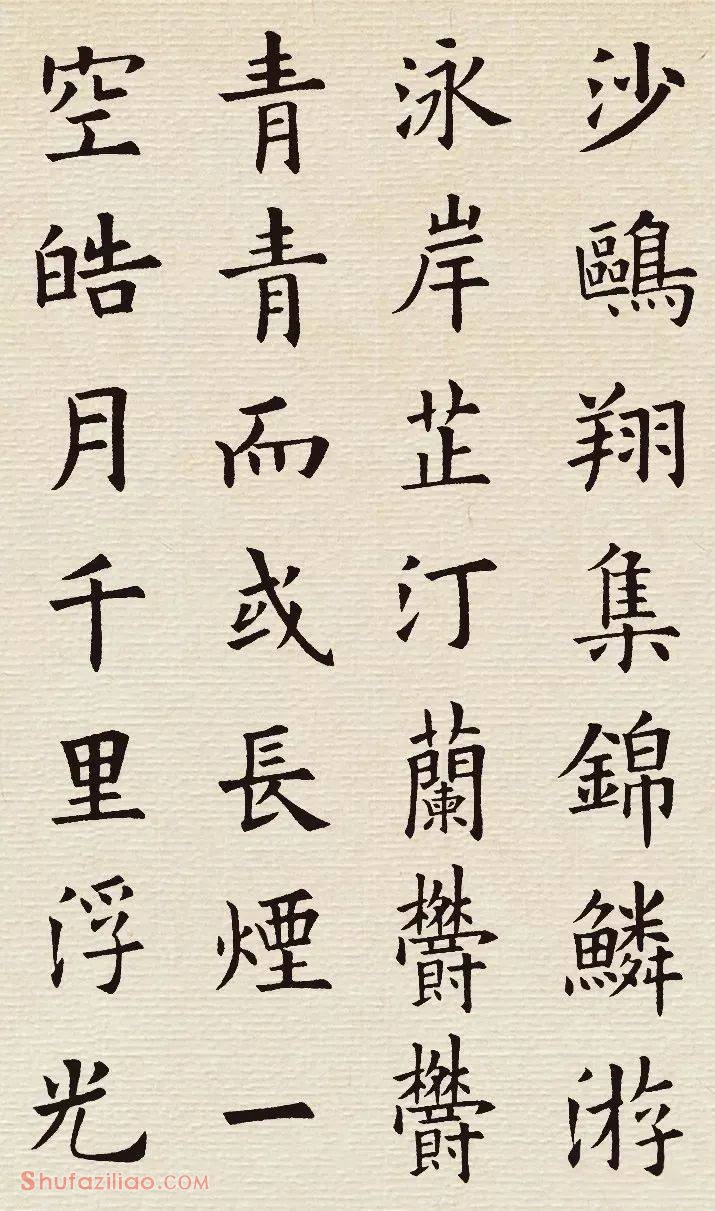 沙鷗翔集錦鱗游
泳岸芷汀蘭欝欝
青青而或長煙一
空皓月千里浮光
Shufaziliao.COM